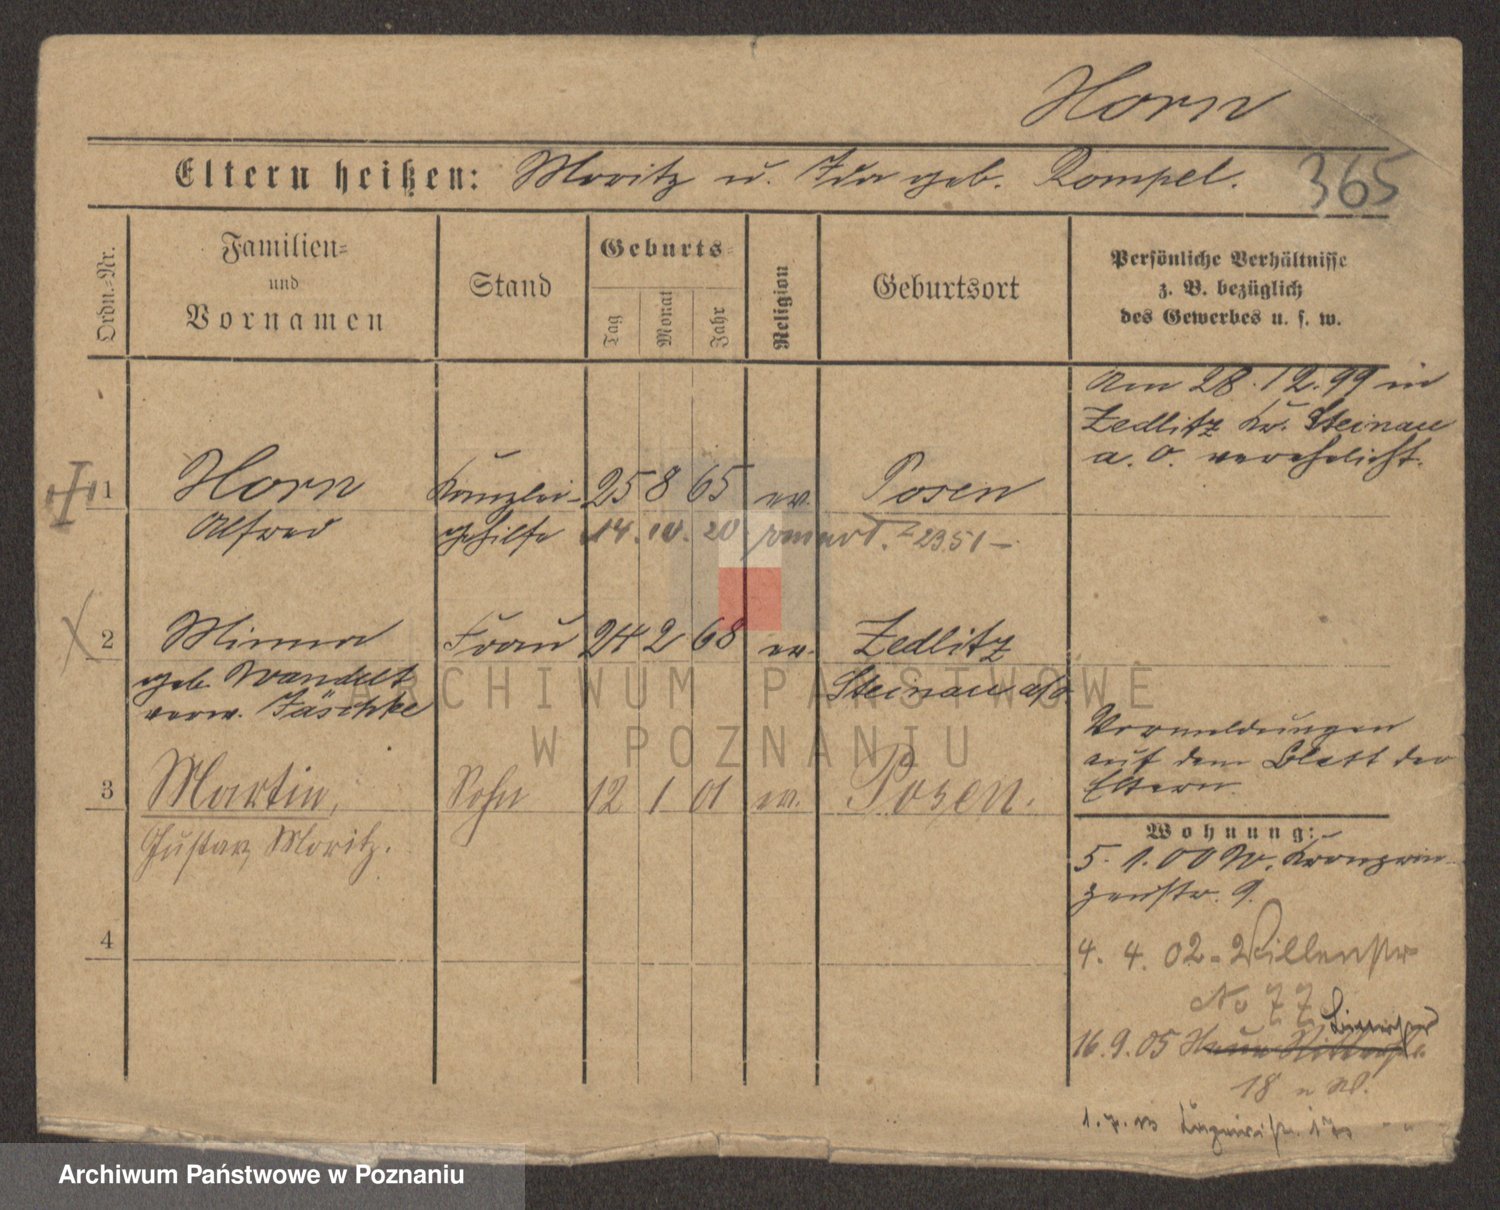 Horn
Eltern heißen: Moritz u. Ida geb. Rompel.
365
Ordn.-Nr.
Familien-
und
Vornamen
Stand
Geburts-
Tag
Monat
Jahr
Religion
Geburtsort
Persönliche Verhältnisse
z. B. bezüglich
des Gewerbes u. s. w.
Am 28.12.99 in
Zedlitz Kr. Steinau
a. O. verehelicht.
1 Horn Kanzlei- 25 8 65 ev. Posen
Alfred gehilfe 14. 10. 20 2351 —
2 Minna Frau 24 2 68 ev. Zedlitz
geb. Wandelt Steinau a/O.
verw. Jäschke
Vermeldungen
auf dem Blatt der
Eltern.
3 Martin, Sohn 12 1 01 ev. Posen.
Gustav, Moritz.
4
Wohnung:
5. 1. 00 W. Kronprin-
zenstr. 9.
4. 4. 02 - Villenstr
No 77
16. 9. 05
18 n W.
ARCHIWUM PAŃSTWOWE
W POZNANIU
Archiwum Państwowe w Poznaniu